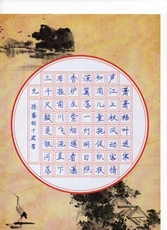 萧萧梧叶送寒
声江上秋风动客情
知有儿童挑促织夜
深篱落一灯明日照
香炉生紫烟遥看瀑
布挂前川飞流直下
三千尺疑是银河落
九 十岁书